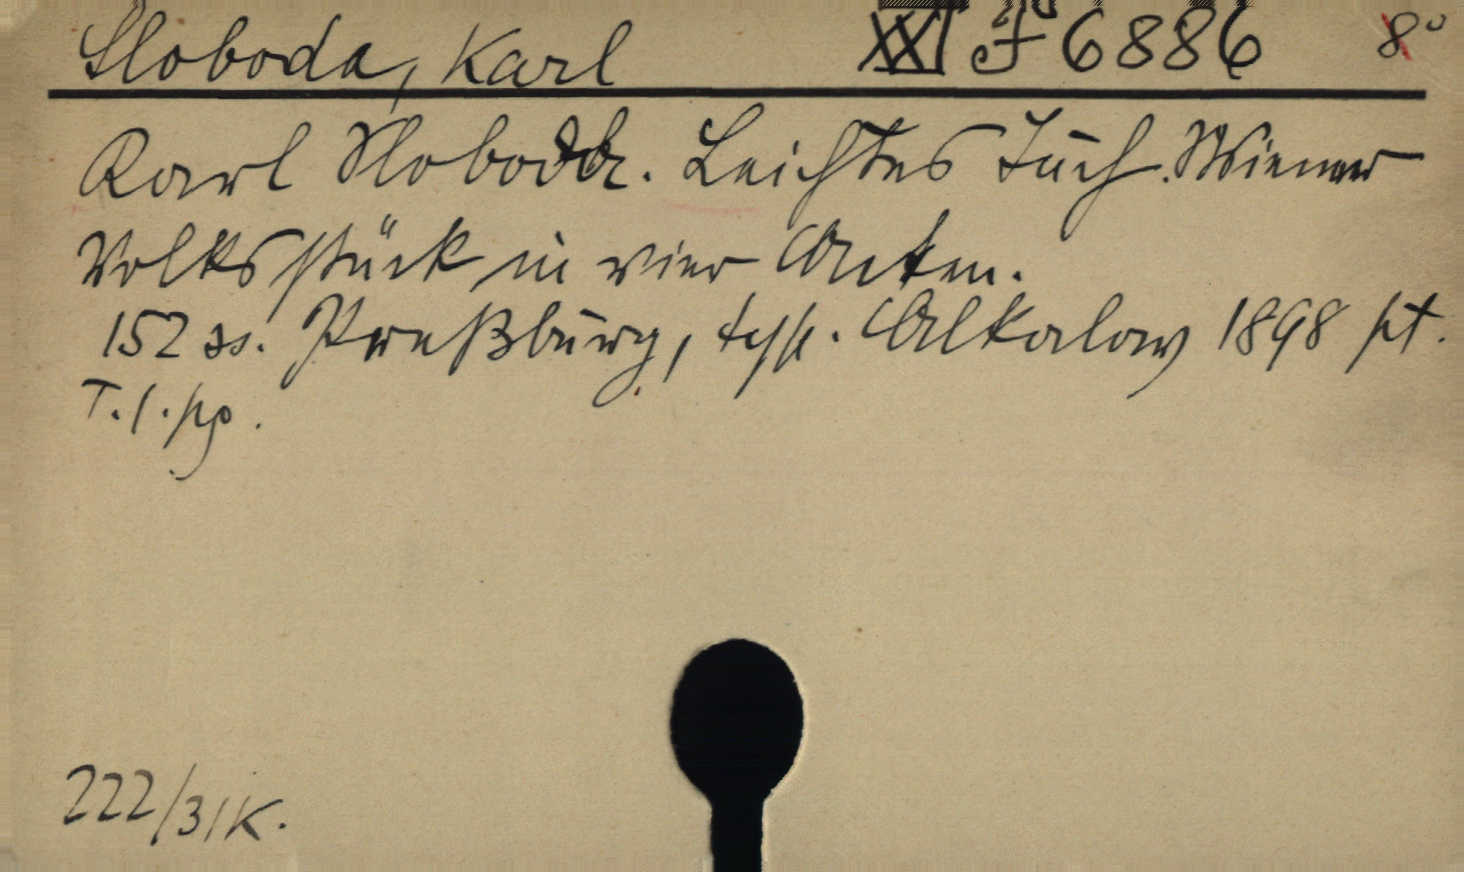 Sloboda, Karl XXI J 6886 8°
Karl Sloboda. Leichtes Tuch. Wiener
Volksstück in vier Akten.
152 ss. Preßburg, typ. Alkalay 1898 pt.
T. l. pg.
222/31K.